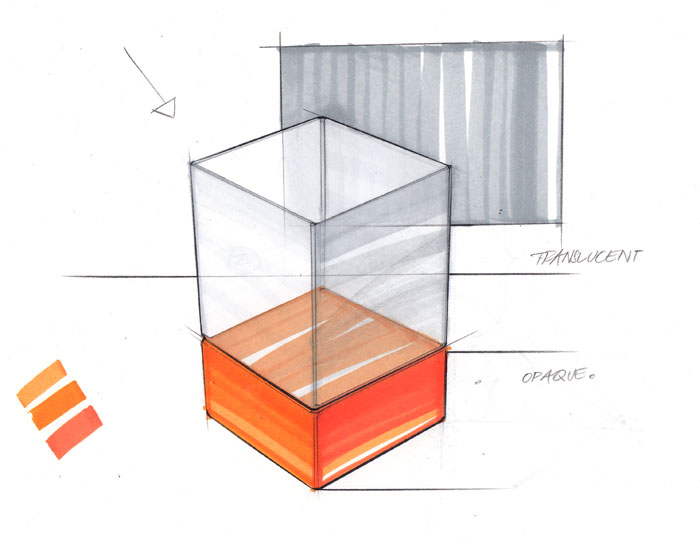 TRANSLUCENT
OPAQUE.